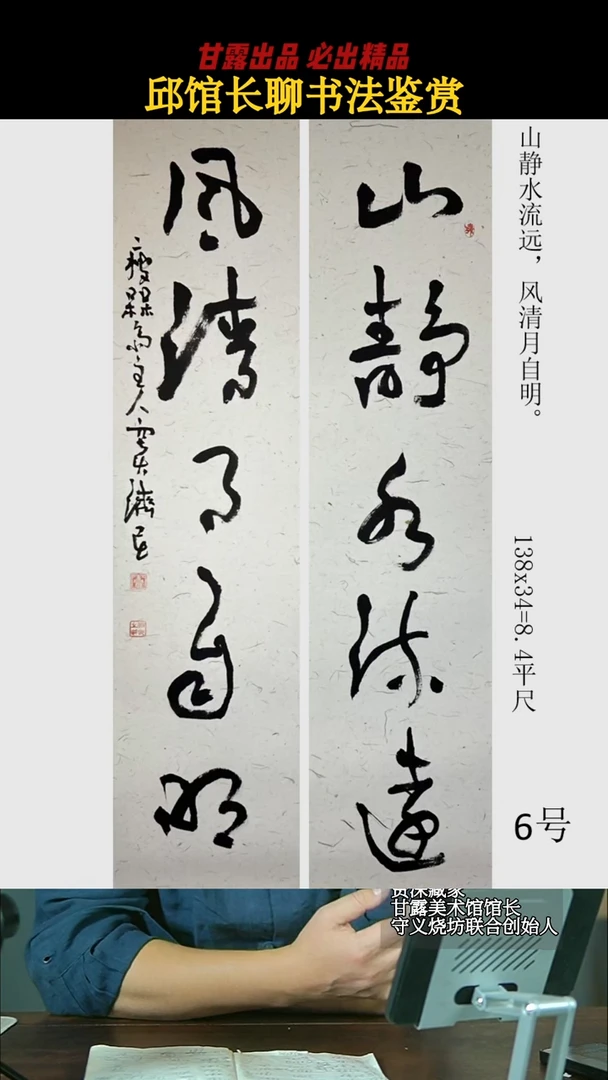 甘露出品 必出精品
邱馆长聊书法鉴赏
山靜水流遠
風清月自明
主人
山静水流远，风清月自明。
138x34=8.4平尺
6号
资深藏家
甘露美术馆馆长
守义烧坊联合创始人